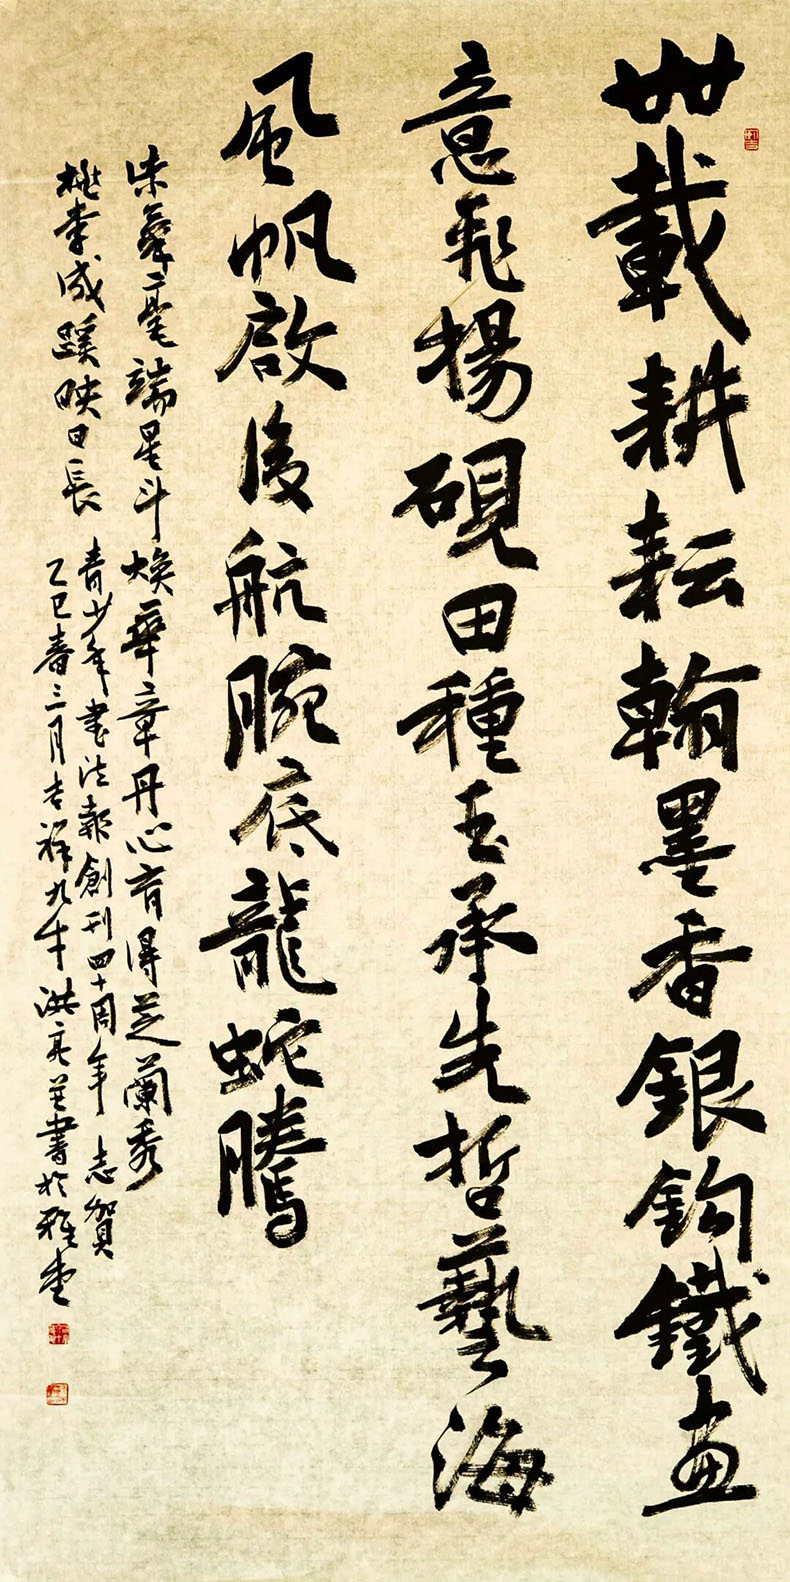 卌載耕耘翰墨香銀鈎鐵畫
意飛揚硯田種玉承先哲藝海
風帆啟後航腕底龍蛇騰
柒彩毫端星斗煥華章丹心育得芝蘭秀
桃李成蹊映日長
青少年書法報創刊四十周年 志賀
乙巳春三月吉祥九牛洪亮並書於雅堂